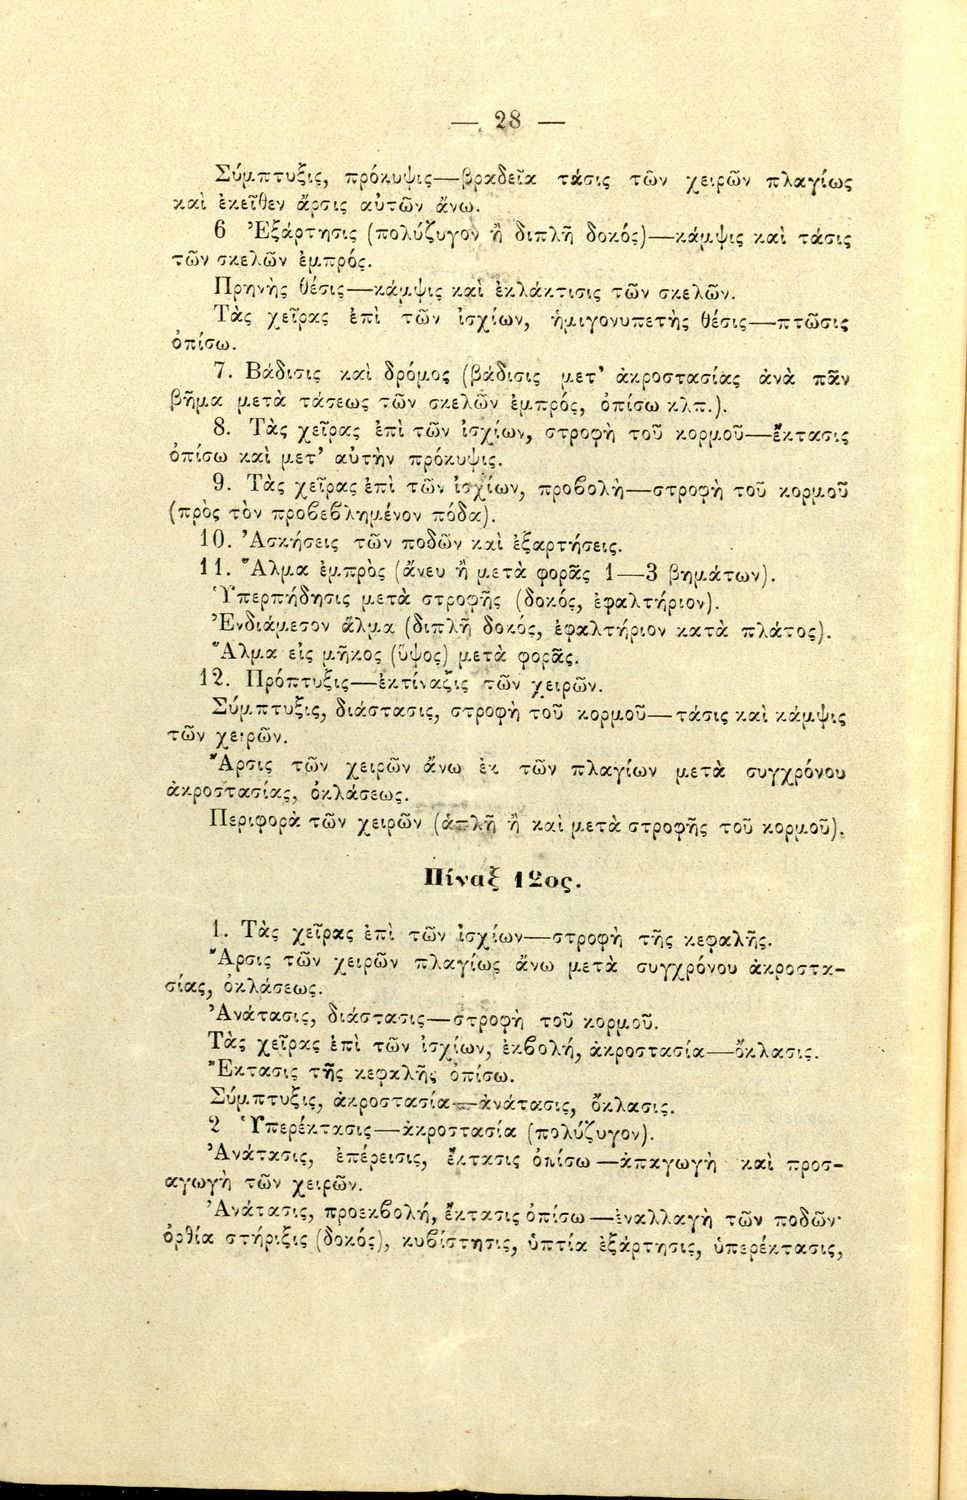 — 28 —
Σύμπτυξις, πρόκυψις—βραδεῖα τάσις τῶν χειρῶν πλαγίως
καὶ ἐκεῖθεν ἄρσις αὐτῶν ἄνω.
6 Ἐξάρτησις (πολύζυγον ἢ διπλῆ δοκός)—κάμψις καὶ τάσις
τῶν σκελῶν ἐμπρός.
Πρηνὴς θέσις—κάμψις καὶ ἐκλάκτισις τῶν σκελῶν.
Τὰς χεῖρας ἐπὶ τῶν ἰσχίων, ἡμιγονυπετὴς θέσις—πτῶσις
ὀπίσω.
7. Βάδισις καὶ δρόμος (βάδισις μετ' ἀκροστασίας ἀνὰ πᾶν
βῆμα μετὰ τάσεως τῶν σκελῶν ἐμπρός, ὀπίσω κλπ.).
8. Τὰς χεῖρας ἐπὶ τῶν ἰσχίων, στροφὴ τοῦ κορμοῦ—ἔκτασις
ὀπίσω καὶ μετ' αὐτὴν πρόκυψις.
9. Τὰς χεῖρας ἐπὶ τῶν ἰσχίων, προβολὴ—στροφὴ τοῦ κορμοῦ
(πρὸς τὸν προβεβλημένον πόδα).
10. Ἀσκήσεις τῶν ποδῶν καὶ ἐξαρτήσεις.
11. Ἅλμα ἐμπρὸς (ἄνευ ἢ μετὰ φορᾶς 1—3 βημάτων).
Ὑπερπήδησις μετὰ στροφῆς (δοκός, ἐφαλτήριον).
Ἐνδιάμεσον ἅλμα (διπλῆ δοκός, ἐφαλτήριον κατὰ πλάτος).
Ἅλμα εἰς μῆκος (ὕψος) μετὰ φορᾶς.
12. Πρόπτυξις—ἐκτίναξις τῶν χειρῶν.
Σύμπτυξις, διάστασις, στροφὴ τοῦ κορμοῦ—τάσις καὶ κάμψις
τῶν χειρῶν.
Ἄρσις τῶν χειρῶν ἄνω ἐκ τῶν πλαγίων μετὰ συγχρόνου
ἀκροστασίας, ὀκλάσεως.
Περιφορὰ τῶν χειρῶν (ἁπλῆ ἢ καὶ μετὰ στροφῆς τοῦ κορμοῦ).
Πίναξ 12ος.
1. Τὰς χεῖρας ἐπὶ τῶν ἰσχίων—στροφὴ τῆς κεφαλῆς.
Ἄρσις τῶν χειρῶν πλαγίως ἄνω μετὰ συγχρόνου ἀκροστα-
σίας, ὀκλάσεως.
Ἀνάτασις, διάστασις—στροφὴ τοῦ κορμοῦ.
Τὰς χεῖρας ἐπὶ τῶν ἰσχίων, ἐκβολή, ἀκροστασία—ὄκλασις.
Ἔκτασις τῆς κεφαλῆς ὀπίσω.
Σύμπτυξις, ἀκροστασία—ἀνάτασις, ὄκλασις.
2 Ὑπερέκτασις—ἀκροστασία (πολύζυγον).
Ἀνάτασις, ἐπέρεισις, ἔκτασις ὀπίσω—ἀπαγωγὴ καὶ προσ-
αγωγὴ τῶν χειρῶν.
Ἀνάτασις, προεκβολή, ἔκτασις ὀπίσω—ἐναλλαγὴ τῶν ποδῶν·
ὀρθία στήριξις (δοκός), κυβίστησις, ὑπτία ἐξάρτησις, ὑπερέκτασις,